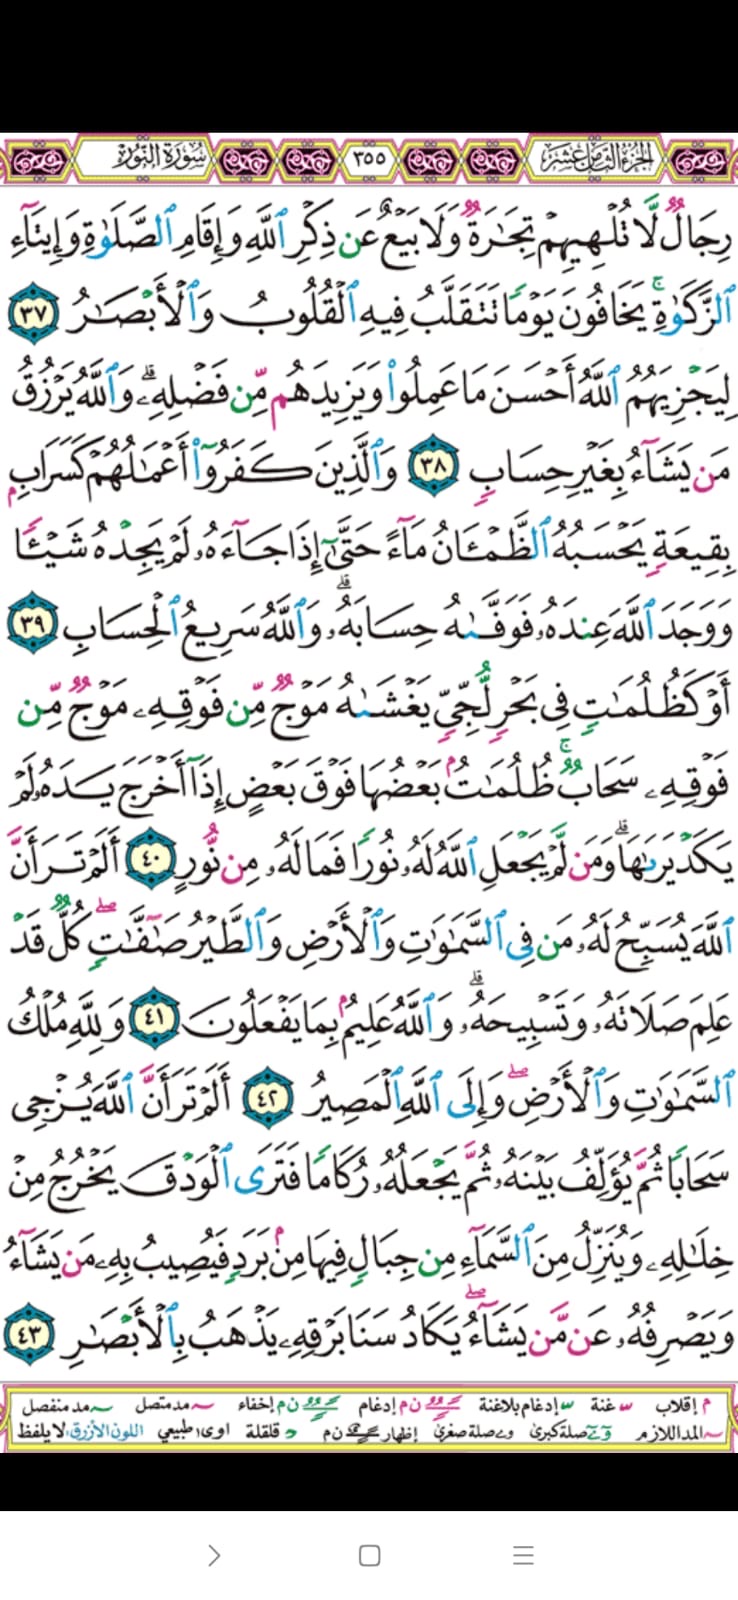 الجزء الثامن عشر ٣٥٥ سورة النور
رِجَالٌ لَّا تُلْهِيهِمْ تِجَٰرَةٌ وَلَا بَيْعٌ عَن ذِكْرِ ٱللَّهِ وَإِقَامِ ٱلصَّلَوٰةِ وَإِيتَآءِ
ٱلزَّكَوٰةِ ۙ يَخَافُونَ يَوْمًا تَتَقَلَّبُ فِيهِ ٱلْقُلُوبُ وَٱلْأَبْصَٰرُ ٣٧
لِيَجْزِيَهُمُ ٱللَّهُ أَحْسَنَ مَا عَمِلُوا۟ وَيَزِيدَهُم مِّن فَضْلِهِۦ ۗ وَٱللَّهُ يَرْزُقُ
مَن يَشَآءُ بِغَيْرِ حِسَابٍ ٣٨ وَٱلَّذِينَ كَفَرُوٓا۟ أَعْمَٰلُهُمْ كَسَرَابٍۭ
بِقِيعَةٍ يَحْسَبُهُ ٱلظَّمْـَٔانُ مَآءً حَتَّىٰٓ إِذَا جَآءَهُۥ لَمْ يَجِدْهُ شَيْـًٔا
وَوَجَدَ ٱللَّهَ عِندَهُۥ فَوَفَّىٰهُ حِسَابَهُۥ ۗ وَٱللَّهُ سَرِيعُ ٱلْحِسَابِ ٣٩
أَوْ كَظُلُمَٰتٍ فِى بَحْرٍ لُّجِّىٍّ يَغْشَىٰهُ مَوْجٌ مِّن فَوْقِهِۦ مَوْجٌ مِّن
فَوْقِهِۦ سَحَابٌ ۚ ظُلُمَٰتٌۢ بَعْضُهَا فَوْقَ بَعْضٍ إِذَآ أَخْرَجَ يَدَهُۥ لَمْ
يَكَدْ يَرَىٰهَا ۗ وَمَن لَّمْ يَجْعَلِ ٱللَّهُ لَهُۥ نُورًا فَمَا لَهُۥ مِن نُّورٍ ٤٠ أَلَمْ تَرَ أَنَّ
ٱللَّهَ يُسَبِّحُ لَهُۥ مَن فِى ٱلسَّمَٰوَٰتِ وَٱلْأَرْضِ وَٱلطَّيْرُ صَٰٓفَّٰتٍ ۖ كُلٌّ قَدْ
عَلِمَ صَلَاتَهُۥ وَتَسْبِيحَهُۥ ۗ وَٱللَّهُ عَلِيمٌۢ بِمَا يَفْعَلُونَ ٤١ وَلِلَّهِ مُلْكُ
ٱلسَّمَٰوَٰتِ وَٱلْأَرْضِ ۖ وَإِلَى ٱللَّهِ ٱلْمَصِيرُ ٤٢ أَلَمْ تَرَ أَنَّ ٱللَّهَ يُزْجِى
سَحَابًا ثُمَّ يُؤَلِّفُ بَيْنَهُۥ ثُمَّ يَجْعَلُهُۥ رُكَامًا فَتَرَى ٱلْوَدْقَ يَخْرُجُ مِنْ
خِلَٰلِهِۦ وَيُنَزِّلُ مِنَ ٱلسَّمَآءِ مِن جِبَالٍ فِيهَا مِنۢ بَرَدٍ فَيُصِيبُ بِهِۦ مَن يَشَآءُ
وَيَصْرِفُهُۥ عَن مَّن يَشَآءُ ۖ يَكَادُ سَنَا بَرْقِهِۦ يَذْهَبُ بِٱلْأَبْصَٰرِ ٤٣
م إقلاب غنة إدغام بلاغنة ن م إدغام ن م إخفاء مد متصل مد منفصل
المد اللازم صلة كبرى صلة صغرى إظهار ن م قلقلة اوى طبيعي اللون الأزرق لا يلفظ